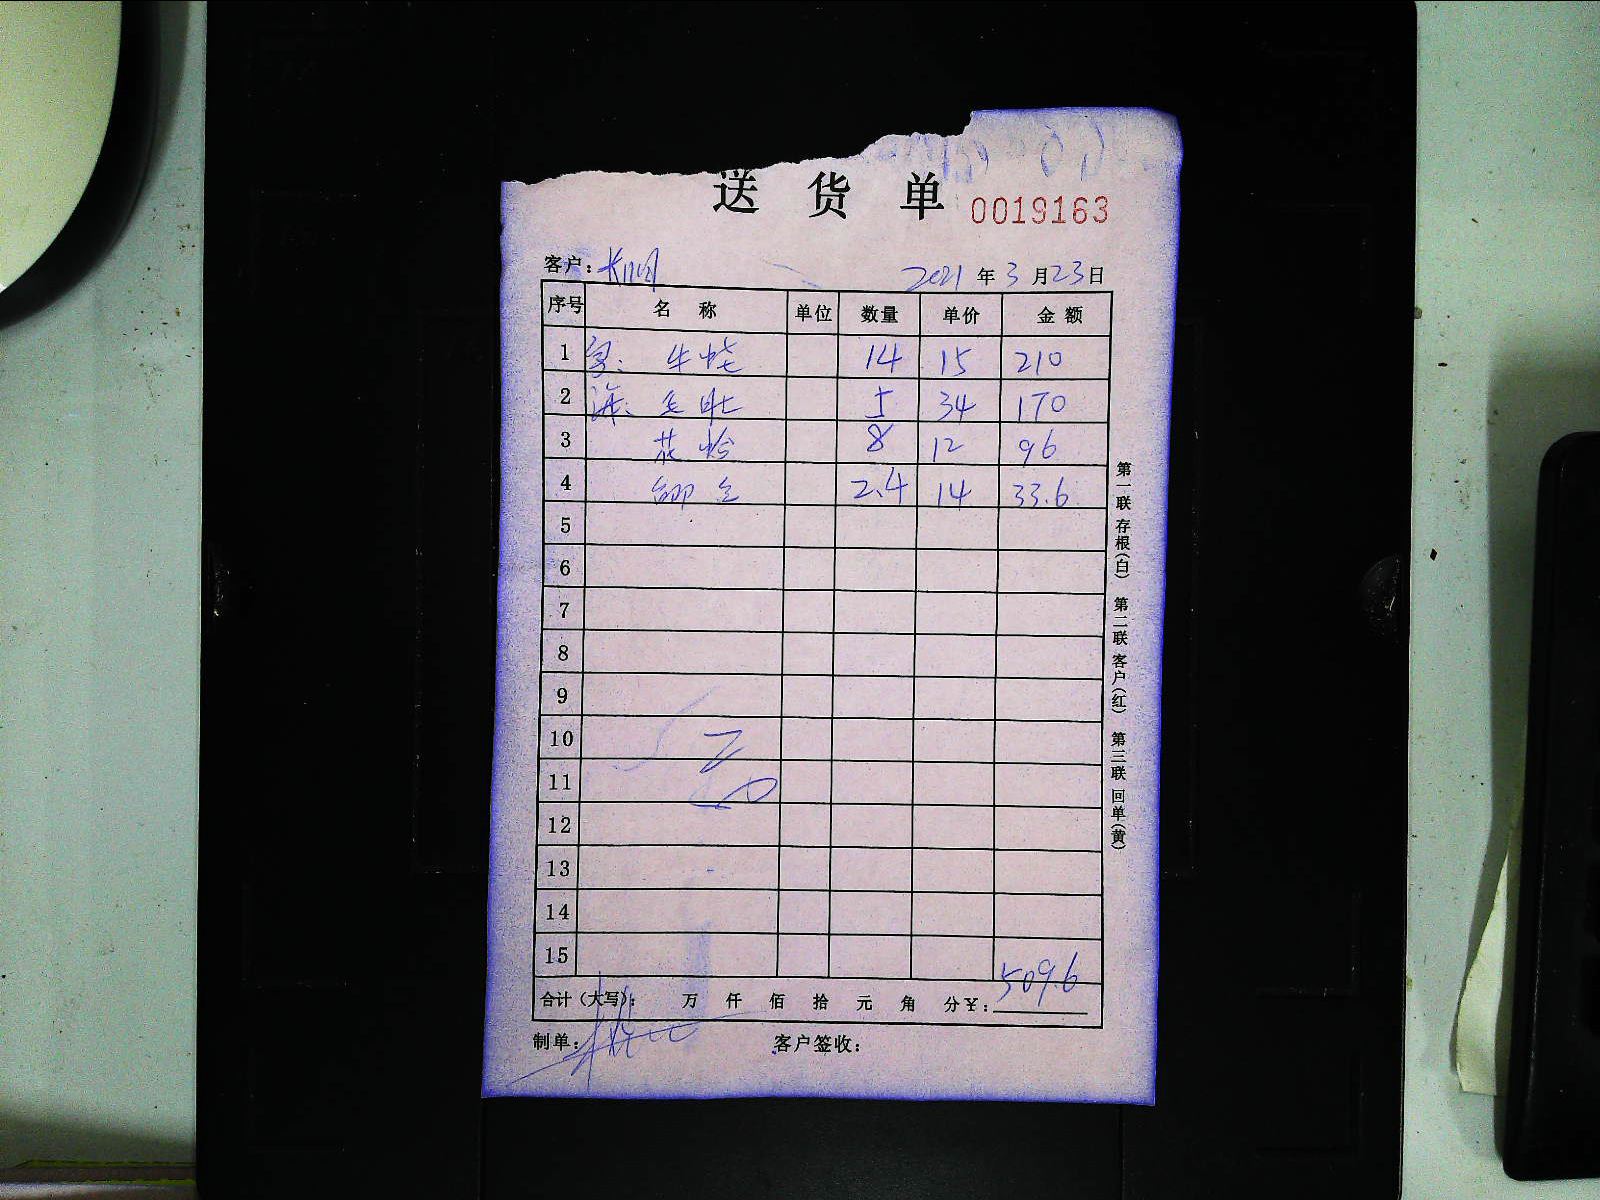 送 货 单 0019163
客户: 2021 年 3 月 23 日
序号 名 称 单位 数量 单价 金 额
1 14 15 210
2 5 34 170
3 花蛤 8 12 96
4 2.4 14 33.6
5
6
7
8
9
10
11
12
13
14
15 509.6
合计（大写）: 万 仟 佰 拾 元 角 分 ¥:
制单: 客户签收:
第一联 存根(白) 第二联 客户(红) 第三联 回单(黄)